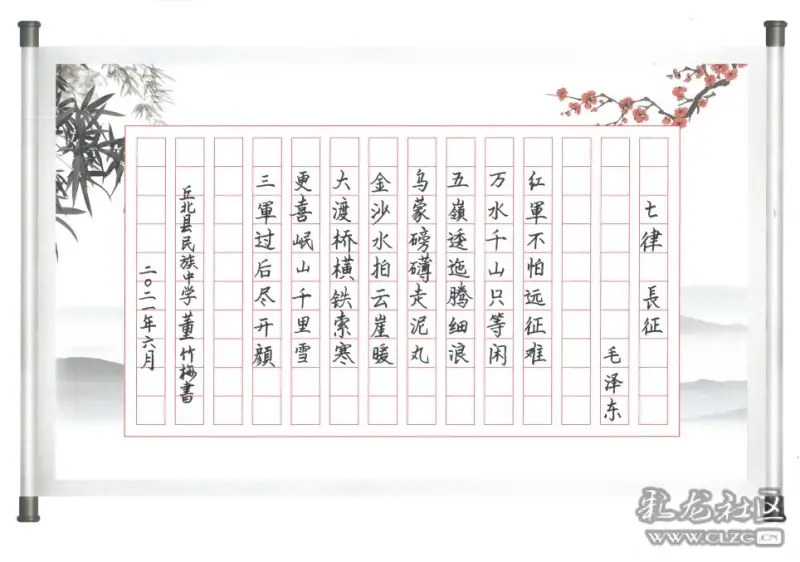 七律 長征
毛泽东
红軍不怕远征难
万水千山只等闲
五嶺逶迤腾细浪
乌蒙磅礴走泥丸
金沙水拍云崖暖
大渡桥横铁索寒
更喜岷山千里雪
三軍过后尽开顔
丘北县民族中学 董竹梅書
二〇二一年六月
乳龙社区
WWW.CLZG.CN